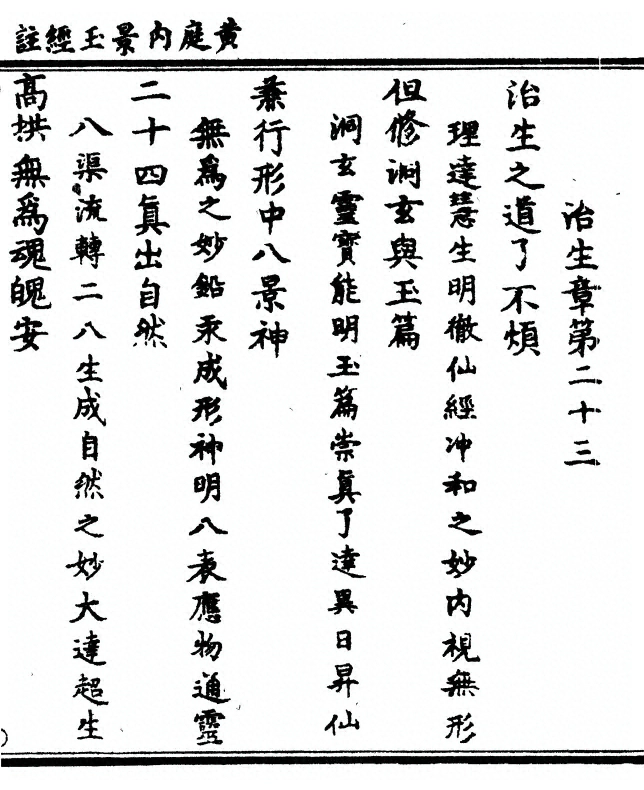 黄庭内景玉經註
治生章第二十三
治生之道了不煩
理達慧生明徹仙經冲和之妙内視無形
但修洞玄與玉篇
洞玄靈寶能明玉篇崇真了達異日昇仙
兼行形中八景神
無爲之妙鉛汞成形神明八表應物通靈
二十四真出自然
八渠流轉二八生成自然之妙大達超生
高拱無爲魂魄安